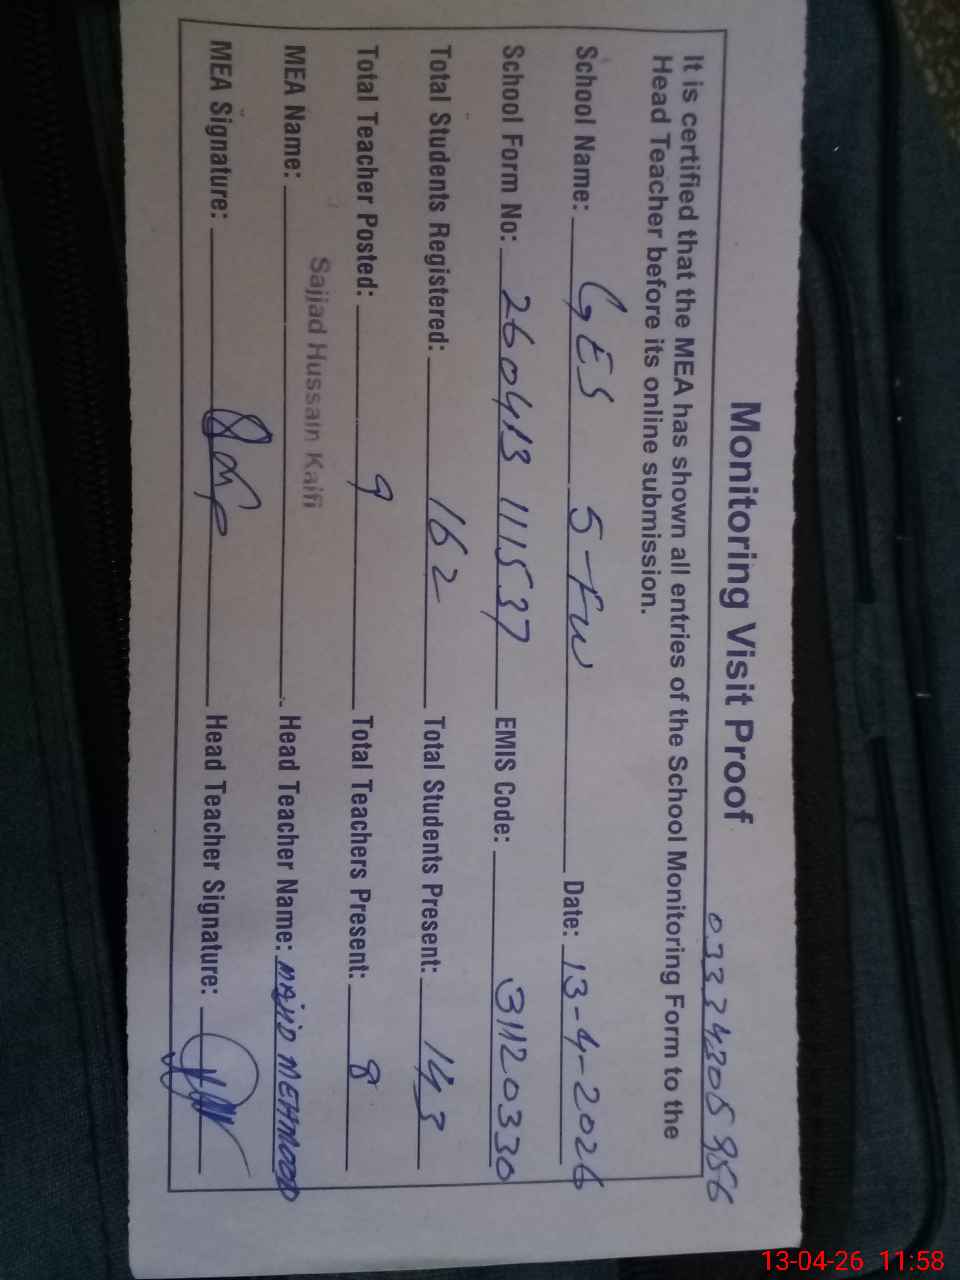 Monitoring Visit Proof 03334305956
It is certified that the MEA has shown all entries of the School Monitoring Form to the
Head Teacher before its online submission.
School Name: GES 5-FW Date: 13-4-2026
School Form No: 260413 111537 EMIS Code: 31120330
Total Students Registered: 162 Total Students Present: 143
Total Teacher Posted: 9 Total Teachers Present: 8
Sajjad Hussain Kaifi
MEA Name: Head Teacher Name: MAJID MEHMOOD
MEA Signature: Head Teacher Signature:
13-04-26 11:58